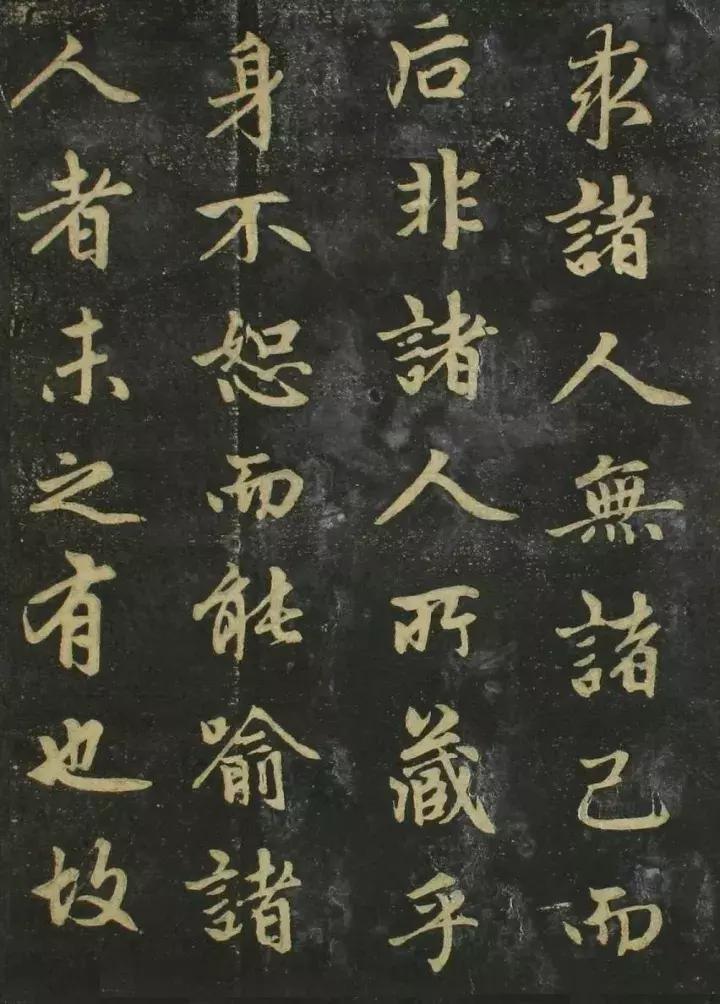 求諸人無諸己而
后非諸人所藏乎
身不恕而能喻諸
人者未之有也故